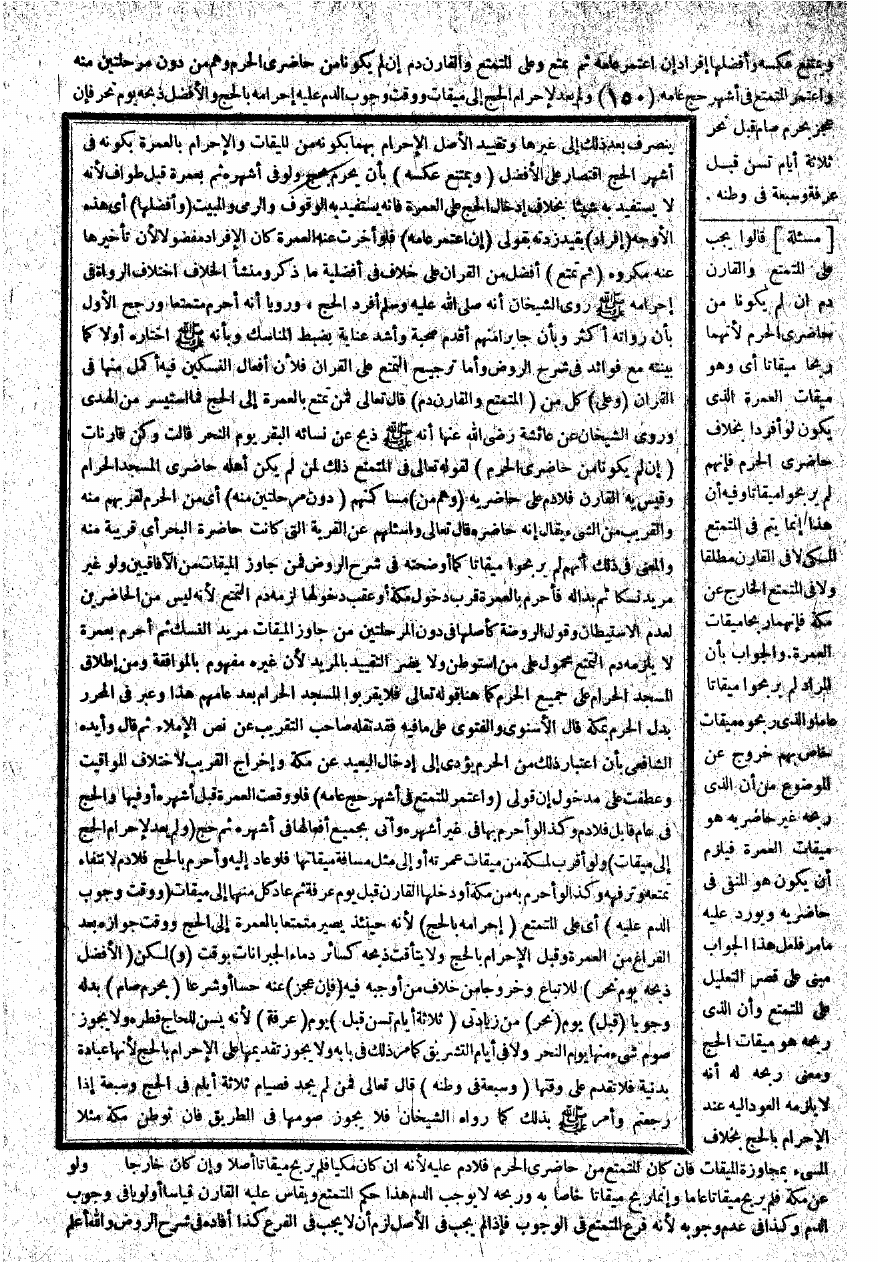 ويمتنع عكسه وأفضلها إفراد إن اعتمر عامه ثم تمتع وعلى المتمتع والقارن دم إن لم يكونا من حاضرى الحرم وهم من دون مرحلتين منه
واعتمر المتمتع فى أشهر حج عامه (١٥٠) ولم يعد لإحرام الحج إلى ميقات ووقت وجوب الدم عليه إحرامه بالحج والأفضل ذبحه يوم نحر فإن
عجز بحرم صام قبل نحر
ثلاثة أيام تسن قبل
عرفة وسبعة فى وطنه .
[ مسئلة ] قالوا يجب
على المتمتع والقارن
دم ان لم يكونا من
حاضرى الحرم لأنهما
ربحا ميقاتا أى وهو
ميقات العمرة الذى
يكون لو أفردا بخلاف
حاضرى الحرم فإنهم
لم يربحوا ميقاتا وفيه أن
هذا إنما يتم فى المتمتع
المكى لا فى القارن مطلقا
ولا فى المتمتع الخارج عن
مكة فإنهما ربحا ميقات
العمرة. والجواب بأن
المراد لم يربحوا ميقاتا
عاما والذى ربحوه ميقات
خاص بهم خروج عن
الموضوع من أن الذى
ربحه غير حاضريه هو
ميقات العمرة فيلزم
أن يكون هو المنفى فى
حاضريه ويورد عليه
مامر فلعل هذا الجواب
مبنى على قصر التعليل
على المتمتع وأن الذى
ربحه هو ميقات الحج
ومعنى ربحه له أنه
لا يلزمه العود اليه عند
الإحرام بالحج بخلاف
ينصرف بعد ذلك إلى غيرها وتقييد الأصل الإحرام بهما بكونه من الميقات والإحرام بالعمرة بكونه فى
أشهر الحج اقتصار على الأفضل ( ويمتنع عكسه ) بأن يحرم بحج ولو فى أشهره ثم بعمرة قبل طواف لأنه
لا يستفيد به شيئا بخلاف إدخال الحج على العمرة فانه يستفيد به الوقوف والرمى والمبيت (وأفضلها) أى هذه
الأوجه (إفراد) بقيد زدته بقولى (إن اعتمر عامه) فلو أخرت عنه العمرة كان الإفراد مفضولا لأن تأخيرها
عنه مكروه (ثم تمتع ) أفضل من القران على خلاف فى أفضلية ما ذكر ومنشأ الخلاف اختلاف الرواة فى
إحرامه ﷺ روى الشيخان أنه صلى الله عليه وسلم أفرد الحج ، ورويا أنه أحرم متمتعا ورجح الأول
بأن رواته أكثر وبأن جابرا منهم أقدم صحبة وأشد عناية بضبط المناسك وبأنه ﷺ اختاره أولا كما
بينته مع فوائد فى شرح الروض وأما ترجيح التمتع على القران فلأن أفعال النسكين فيه أكمل منها فى
القران (وعلى) كل من ( المتمتع والقارن دم) قال تعالى فمن تمتع بالعمرة إلى الحج فما استيسر من الهدى
وروى الشيخان عن عائشة رضى الله عنها أنه ﷺ ذبح عن نسائه البقر يوم النحر قالت وكن قارنات
( إن لم يكونا من حاضرى الحرم ) لقوله تعالى فى المتمتع ذلك لمن لم يكن أهله حاضرى المسجد الحرام
وقيس به القارن فلا دم على حاضريه (وهم من) مساكنهم ( دون مرحلتين منه) أى من الحرم لقربهم منه
والقريب من الشىء يقال إنه حاضره قال تعالى واسئلهم عن القرية التى كانت حاضرة البحر أى قريبة منه
والمعنى فى ذلك أنهم لم يربحوا ميقاتا كما أوضحته فى شرح الروض فمن جاوز الميقات من الآفاقيين ولو غير
مريد نسكا ثم بداله فأحرم بالعمرة قرب دخول مكة أو عقب دخولها لزمه دم التمتع لأنه ليس من الحاضرين
لعدم الاستيطان وقول الروضة كأصلها فى دون المرحلتين من جاوز الميقات مريد النسك ثم أحرم بعمرة
لا يلزمه دم التمتع محمول على من استوطن ولا يضر التقييد بالمريد لأن غيره مفهوم بالموافقة ومن إطلاق
المسجد الحرام على جميع الحرم كما هنا قوله تعالى فلا يقربوا المسجد الحرام بعد عامهم هذا وعبر فى المحرر
بدل الحرم بمكة قال الأسنوى والفتوى على مافيه فقد نقله صاحب التقريب عن نص الإملاء ثم قال وأيده
الشافعى بأن اعتبار ذلك من الحرم يؤدى إلى إدخال البعيد عن مكة وإخراج القريب لاختلاف المواقيت
وعطفت على مدخول إن قولى (واعتمر المتمتع فى أشهر حج عامه) فلو وقعت العمرة قبل أشهره أو فيها والحج
فى عام قابل فلا دم وكذا لو أحرم بها فى غير أشهره وأتى بجميع أفعالها فى أشهره ثم حج (ولم يعد لإحرام الحج
إلى ميقات) ولو أقرب لمكة من ميقات عمرته أو إلى مثل مسافة ميقاتها فلو عاد إليه وأحرم بالحج فلا دم لانتفاء
تمتعه وترفهه وكذا لو أحرم به من مكة أو دخلها القارن قبل يوم عرفة ثم عاد كل منها إلى ميقات (ووقت وجوب
الدم عليه ) أى على المتمتع ( إحرامه بالحج) لأنه حينئذ يصير متمتعا بالعمرة إلى الحج ووقت جوازه بعد
الفراغ من العمرة وقبل الإحرام بالحج ولا يتأقت ذبحه كسائر دماء الجبرانات بوقت (و) لكن ( الأفضل
ذبحه يوم نحر ) للاتباع وخروجا من خلاف من أوجبه فيه (فإن عجز) عنه حسا أو شرعا ( بحرم صام ) بدله
وجوبا (قبل) يوم (نحر) من زيادتى ( ثلاثة أيام تسن قبل ) يوم (عرفة ) لأنه يسن للحاج فطره ولا يجوز
صوم شىء منها يوم النحر ولا فى أيام التشريق كما مر ذلك فى بابه ولا يجوز تقديمها على الإحرام بالحج لأنها عبادة
بدنية فلا تقدم على وقتها ( وسبعة فى وطنه ) قال تعالى فمن لم يجد فصيام ثلاثة أيام فى الحج وسبعة إذا
رجعتم وأمر ﷺ بذلك كما رواه الشيخان فلا يجوز صومها فى الطريق فان توطن مكة مثلا
المسىء بمجاوزة الميقات فان كان المتمتع من حاضرى الحرم فلا دم عليه لأنه ان كان مكيا فلم يربح ميقاتا أصلا وإن كان خارجا ولو
عن مكة فلم يربح ميقاتا عاما وإنما ربح ميقاتا خاصا به وربحه لا يوجب الدم هذا حكم المتمتع ويقاس عليه القارن قياسا أولويا فى وجوب
الدم وكذا فى عدم وجوبه لأنه فرع المتمتع فى الوجوب فإذا لم يجب فى الأصل لزم أن لا يجب فى الفرع كذا أفاده فى شرح الروض والله أعلم